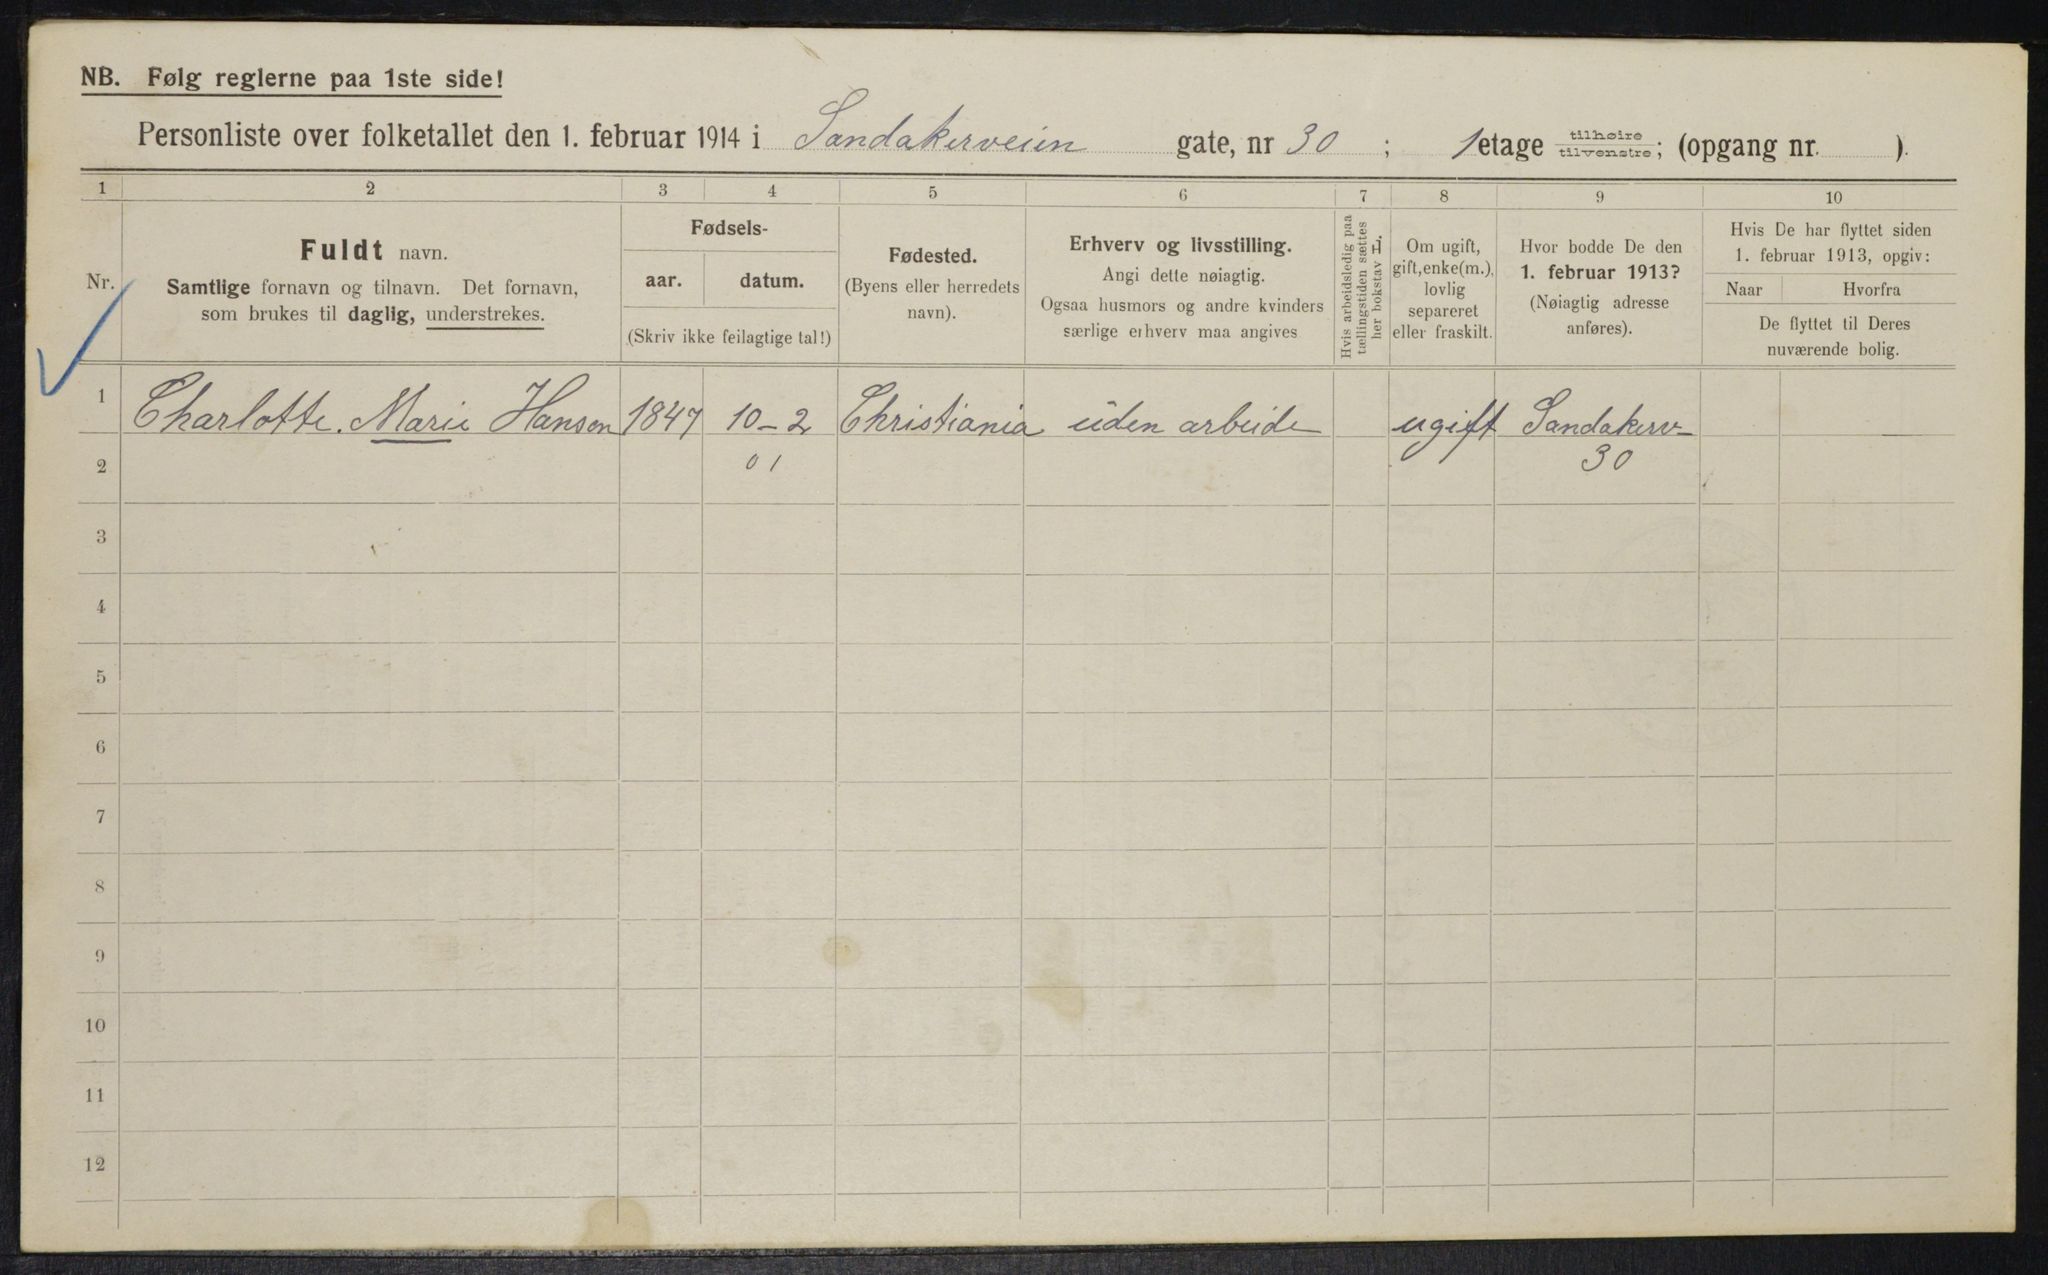 NB. Følg reglerne paa 1ste side!
Personliste over folketallet den 1. februar 1914 i Sandakerveien gate, nr 30 ; 1 etage tilhøire / tilvenstre; (opgang nr. ).
1 2 3 4 5 6 7 8 9 10
Nr.
Fuldt navn.
Samtlige fornavn og tilnavn. Det fornavn,
som brukes til daglig, understrekes.
Fødsels-
aar. datum.
(Skriv ikke feilagtige tal!)
Fødested.
(Byens eller herredets
navn).
Erhverv og livsstilling.
Angi dette nøiagtig.
Ogsaa husmors og andre kvinders
særlige erhverv maa angives
Hvis arbeidsledig paa
tællingstiden sættes
her bokstav L.
Om ugift,
gift, enke(m.),
lovlig
separeret
eller fraskilt.
Hvor bodde De den
1. februar 1913?
(Nøiagtig adresse
anføres).
Hvis De har flyttet siden
1. februar 1913, opgiv:
Naar Hvorfra
De flyttet til Deres
nuværende bolig.
1 Charlotte. Marie Hansen 1847 10-2 Christiania uden arbeide ugift Sandakerv-
2 01 30
3
4
5
6
7
8
9
10
11
12